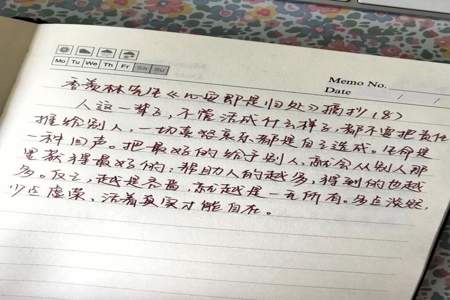 Memo No.
Mo Tu We Th Fr Sa Su
Date / /
季羡林先生《心安即是归处》摘抄(8)
人这一辈子,不管活成什么样子,都不要把责任
推给别人,一切喜怒哀乐都是自己造成。生命是
一种回声。把最好的给予别人,就会从别人那
里获得最好的,帮助人的越多,得到的也越
多。反之,越是吝啬,就越是一无所有。多点淡然,
少点虚荣,活着真实才能自在。